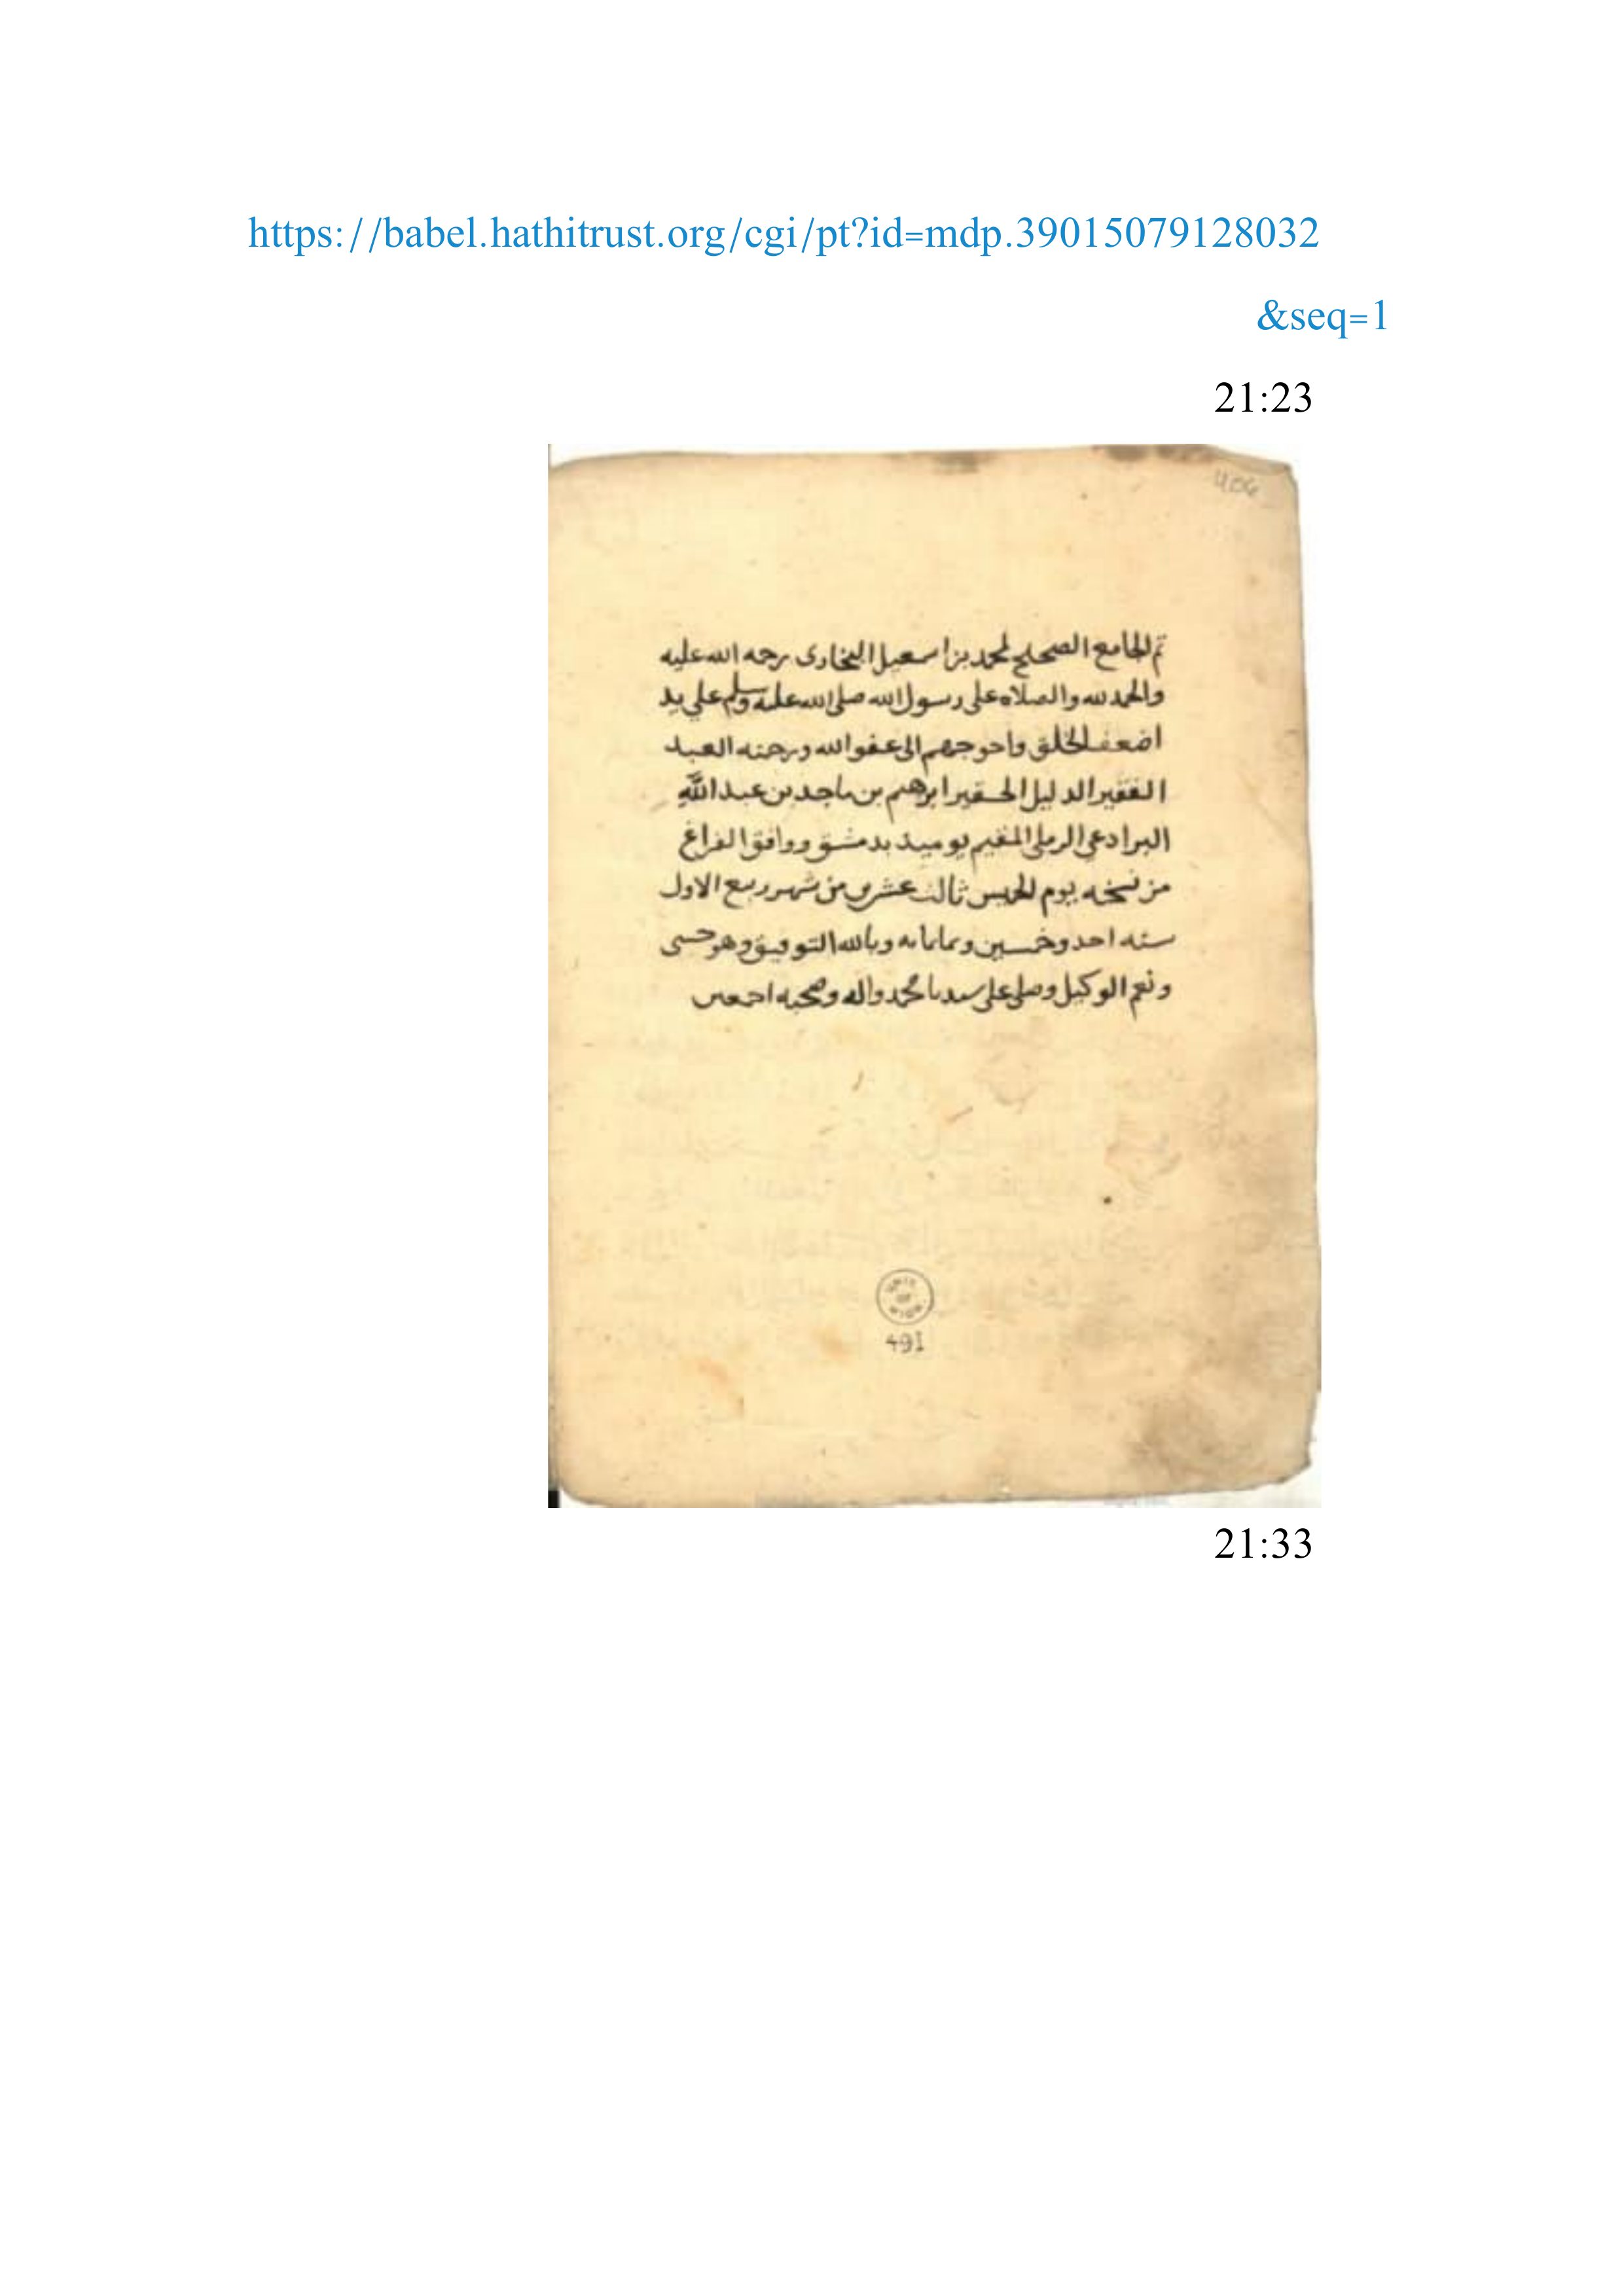 https://babel.hathitrust.org/cgi/pt?id=mdp.39015079128032
&seq=1
21:23
406
تم الجامع الصحيح لمحمد بن اسمعيل البخارى رحمه الله عليه
والحمد لله والصلاه على رسول الله صلى الله عليه وسلم على يد
اضعف الخلق واحوجهم الى عفو الله ورحمته العبد
الفقير الدليل الحقير ابرهيم بن ماجد بن عبد الله
البرادعى الرملى المقيم يوميد بدمشق ووافق الفراغ
من نسخه يوم الخميس ثالث عشرى من شهر ربيع الاول
سنه احد وخمسين وثمانمايه وبالله التوفيق وهو حسبى
ونعم الوكيل وصلى على سيدنا محمد واله وصحبه اجمعين
UNIV.
OF
MICH.
491
21:33